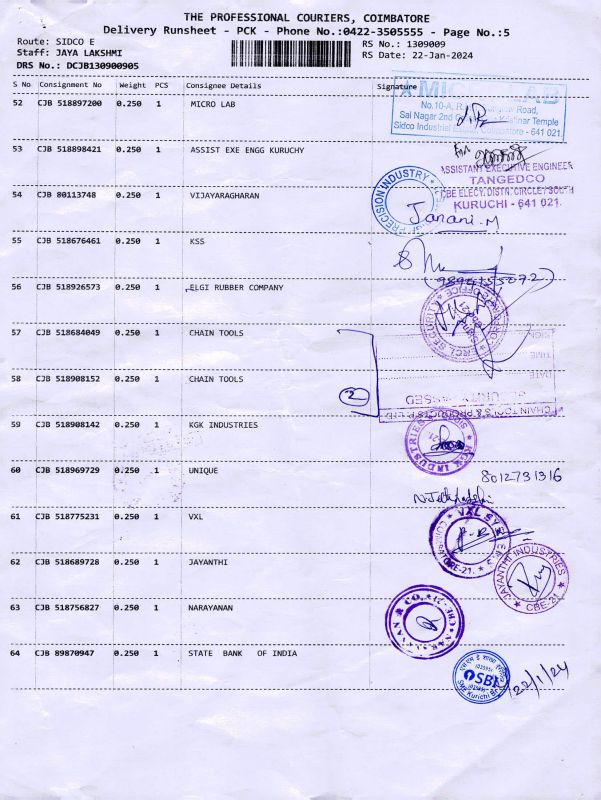 THE PROFESSIONAL COURIERS, COIMBATORE
Delivery Runsheet - PCK - Phone No.:0422-3505555 - Page No.:5
Route: SIDCO E
RS No.: 1309009
Staff: JAYA LAKSHMI
RS Date: 22-Jan-2024
DRS No.: DCJB130900905
S No Consignment No Weight PCS Consignee Details Signature
52 CJB 518897200 0.250 1 MICRO LAB
MICRO LAB
No.10-A, Road,
Sai Nagar 2nd Temple
Sidco Industrial Coimbatore - 641 021.
53 CJB 518898421 0.250 1 ASSIST EXE ENGG KURUCHY
For
ASSISTANT EXECUTIVE ENGINEER
TANGEDCO
CBE ELECY. DISTN. CIRCLE / SOUTH
KURUCHI - 641 021.
54 CJB 80113748 0.250 1 VIJAYARAGHARAN
PRECISION INDUSTRY
Janani.M
55 CJB 518676461 0.250 1 KSS
56 CJB 518926573 0.250 1 ELGI RUBBER COMPANY
57 CJB 518684049 0.250 1 CHAIN TOOLS
58 CJB 518908152 0.250 1 CHAIN TOOLS
2
SIGN
TIME:
DATE
CHAIN TOOLS & PRODUCTS P. LTD
59 CJB 518908142 0.250 1 KGK INDUSTRIES
KGK INDUSTRIES
60 CJB 518969729 0.250 1 UNIQUE
8012731316
61 CJB 518775231 0.250 1 VXL
VXL SYSTEMS
COIMBATORE-21.
62 CJB 518689728 0.250 1 JAYANTHI
JAYANTHI INDUSTRIES
CBE-21
63 CJB 518756827 0.250 1 NARAYANAN
NARAYANAN & CO.
64 CJB 89870947 0.250 1 STATE BANK OF INDIA
SBI
SME Kurichi Br.
22/1/24